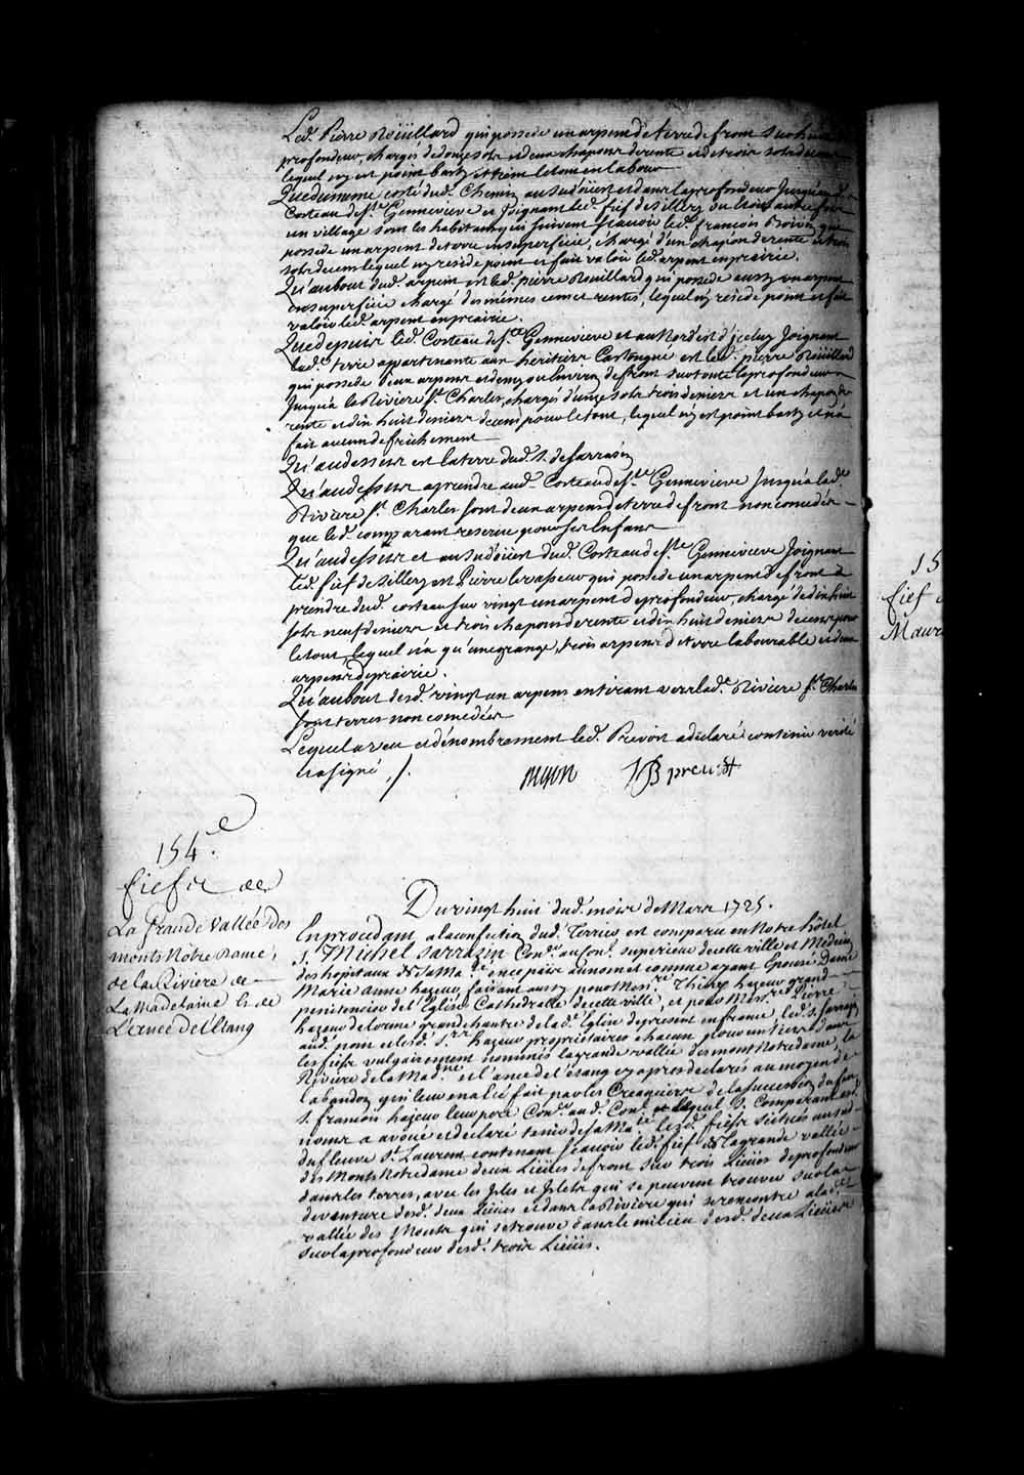 Led. Pierre Roüillard qui possede un arpent de terre de front sur
profondeur, chargé de douze sols et deux chapons de rente et de trois sols de cens
lequel ny est point basty et tient le tout en labour
Que du mesme costé dud. Chemin au Sudoüest et dans la profondeur Jusques
Costeau de Ste Gennevieve et Joignant led. fief de Sillery ou
un village sont les habitans qui suivent scavoir led. françois Boivin qui
possede un arpent de terre en superficie, chargé d'un chapon de rente et
sols de cens lequel ny reside point et fait valoir led. arpent en prairie.
Qu'au bout dud. arpent est led. pierre Rouillard qui possede aussy un arpent
en superficie chargé des mémes cens et rentes, lequel ny réside point et fait
valoir led. arpent en prairie.
Que depuis led. Costeau de Ste Gennevieve et au Nord'est d'jceluy Joignant
lad. terre appartenante aux heritiers Cartongue est led. pierre Roüillard
qui possede deux arpens et demy ou Environ de front sur toute la profondeur
Jusqu'a la Riviere St Charles, chargés d'unze sols trois deniers et un chapon de
rente et dix huit deniers de cens pour le tout, lequel n'y est point basty et n'a
fait aucun defrichement
Qu'audessus est la terre dud. S. de Sarrasin
Qu'audessus a prendre aud. Costeau de Ste Gennevieve Jusqu'a lad.
Riviere St Charles sont deux arpens de terre de front non concedés
que led. comparant reserve pour ses Enfans
Qu'audessus et au Sudoüest dud. Costeau de Ste Gennevieve Joignant
led. fief de Sillery est Pierre levasseur qui possede un arpent de front a
prendre dud. costeau sur vingt un arpent de profondeur, chargé de dix huit
sols neuf deniers et trois chapons de rente et dix huit deniers de cens pour
le tout, lequel n'a qu'une grange, trois arpens de terre labourable et deux
arpens de prairie.
Qu'au bout desd. vingt un arpens en tirant vers lad. Riviere St Charles
sont terres non concedées
Lequel aveu et dénombrement led. Prevost a déclaré contenir verité
et a signé ./.
JB prevost
154e
fiefs de
La Grande Vallée des
monts Nôtre Dame,
de la Riviere de
La Madelaine & de
L'Ence de l'Etang
Du vingt huit dud. mois de Mars 1725.
En procedant a la confection dud. Terrier est comparu en Notre hôtel
S. Michel Sarrazin Coner au Conl superieur de cette ville et Medecin
des hôpitaux de Sa Mate en ce païs au nom et comme ayant Epousé Dame
Marie Anne hazeur, faisant aussy pour Messre Thiery hazeur grand
penitencier de l'Eglise Cathedralle de cette ville, et pour Messre Pierre
hazeur de lorme grand chantre de lad. Eglise de présent en france, led. S. Sarrazin
aud. nom et lesd. Srs hazeur propriétaires chacun pour un tiers dans
les fiefs vulgairement nommés la grande vallée des monts Notre dame, la
Riviere de la Madne et l'ance de l'étang cy apres declarés au moyen de
l'abandon qui leur en a été fait par les Creanciers de la succession du feu
S. francois hazeur leur pere Coner aud. Conl. Lequel S. Comparant aud.
noms a avoüé et declaré tenir de Sa Mate lesd. fiefs situés au sud
du fleuve St Laurent, contenant scavoir led. fief de la grande vallée
des Monts Notre dame deux Lieües de front sur trois Lieües de profondeur
dans les terres, avec les Isles et Islets qui se peuvent trouver sur la
devanture desd. deux lieües et dans la Riviere qui se rencontre a lad.
vallée des Monts qui se trouve dans le milieu desd. deux Lieües
sur la profondeur desd. trois Lieües.
15
fief d
Maur